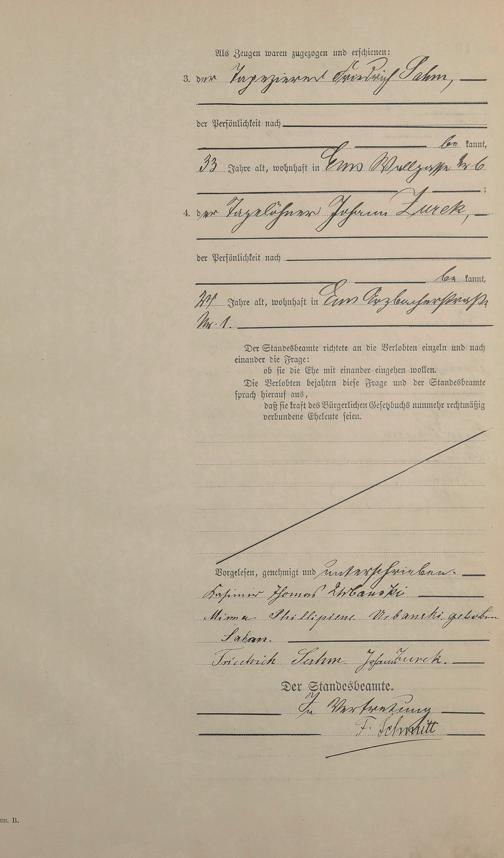 Als Zeugen waren zugezogen und erschienen:
3. der Tapezierer Friedrich Sahm,
der Persönlichkeit nach
be kannt,
33 Jahre alt, wohnhaft in Ems Wallgasse Nr 6
;
4. der Tagelöhner Johann Zurek,
der Persönlichkeit nach
be kannt,
Jahre alt, wohnhaft in Ems Arzbacherstraße
Nr. 1.
Der Standesbeamte richtete an die Verlobten einzeln und nach
einander die Frage:
ob sie die Ehe mit einander eingehen wollen.
Die Verlobten bejahten diese Frage und der Standesbeamte
sprach hierauf aus,
daß sie kraft des Bürgerlichen Gesetzbuchs nunmehr rechtmäßig
verbundene Eheleute seien.
Vorgelesen, genehmigt und unterschrieben.
Kasimir Thomas Urbanski
Minna Phillipiene Urbanski geboren
Friedrich Sahm. Johann Zurek.
Der Standesbeamte.
In Vertretung
F. Schmitt
B.